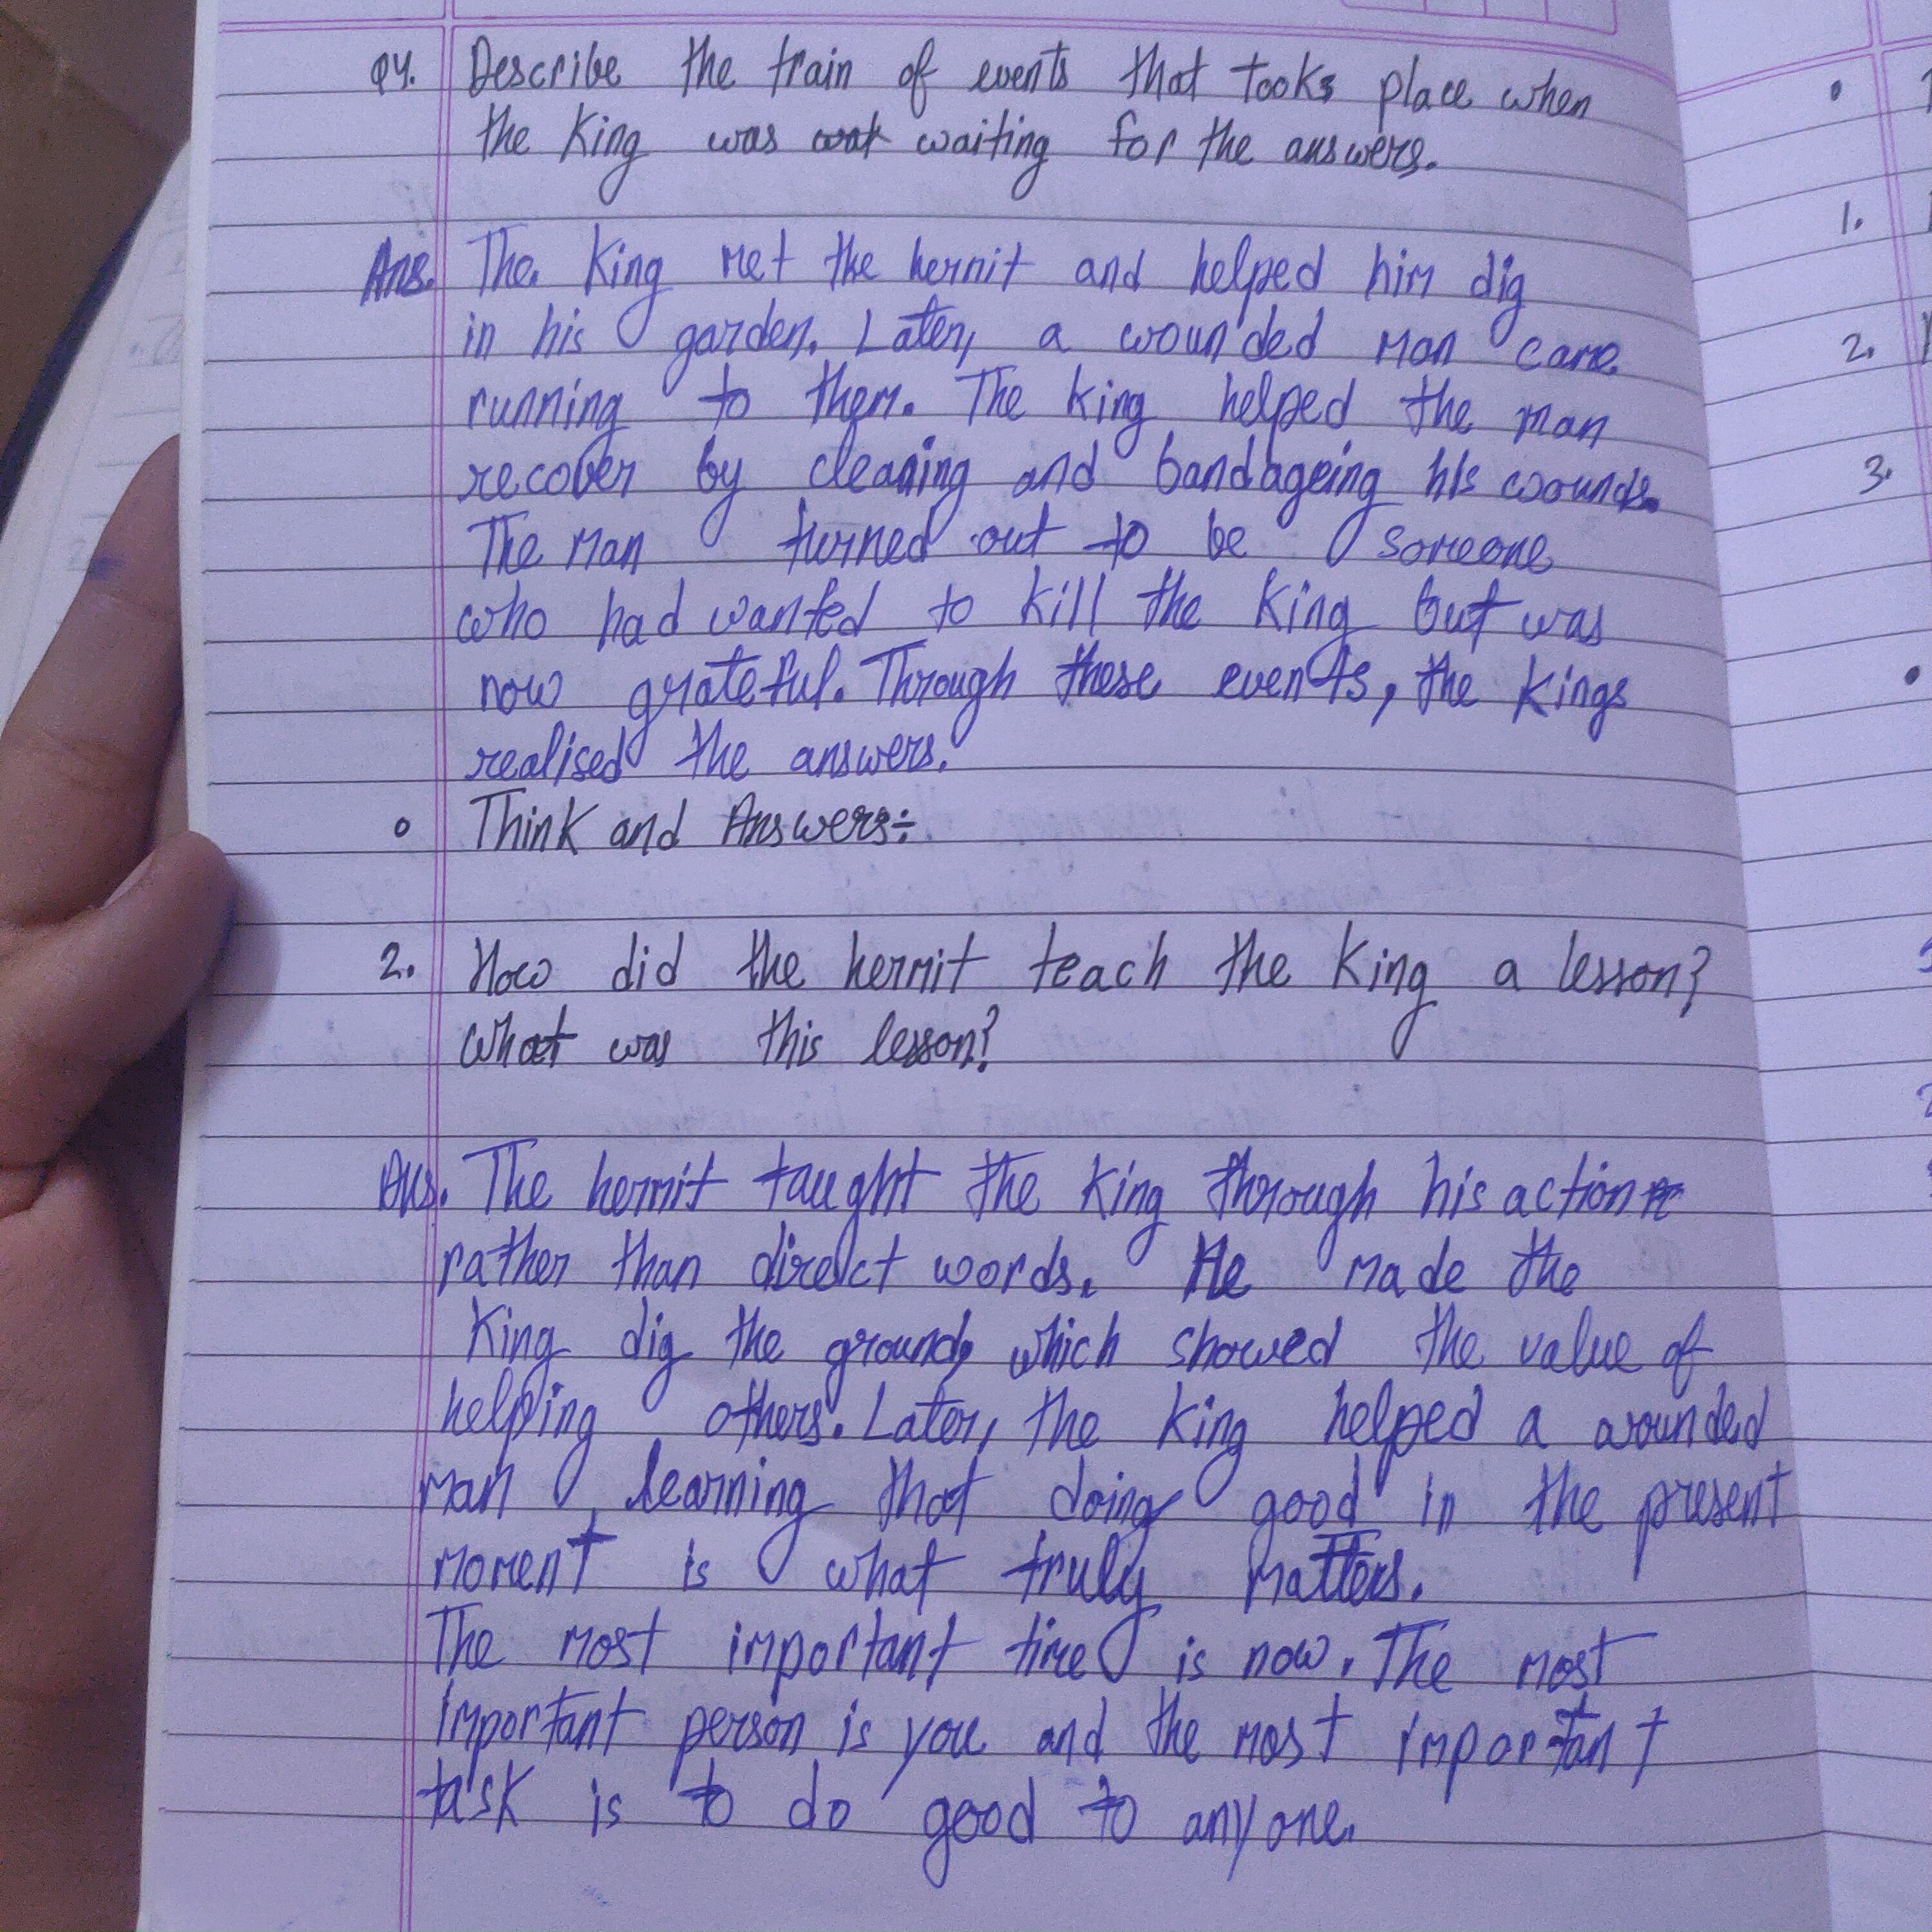 Q4. Describe the train of events that tooks place when
the King was wat waiting for the answers.
Ans. The King met the hermit and helped him dig
in his garden. Later, a wounded man came
running to them. The King helped the man
recover by cleaning and bandageing his wounds.
The man turned out to be someone
who had wanted to kill the King but was
now grateful. Through these events, the Kings
realised the answers.
• Think and Answers:
2. How did the hermit teach the King a lesson?
What was this lesson?
Ans. The hermit taught the King through his action
rather than direct words. He made the
King dig the ground, which showed the value of
helping others. Later, the King helped a wounded
man, learning that doing good in the present
moment is what truly matters.
The most important time is now. The most
important person is you and the most important
task is to do good to anyone.
•
1.
2.
3.
•